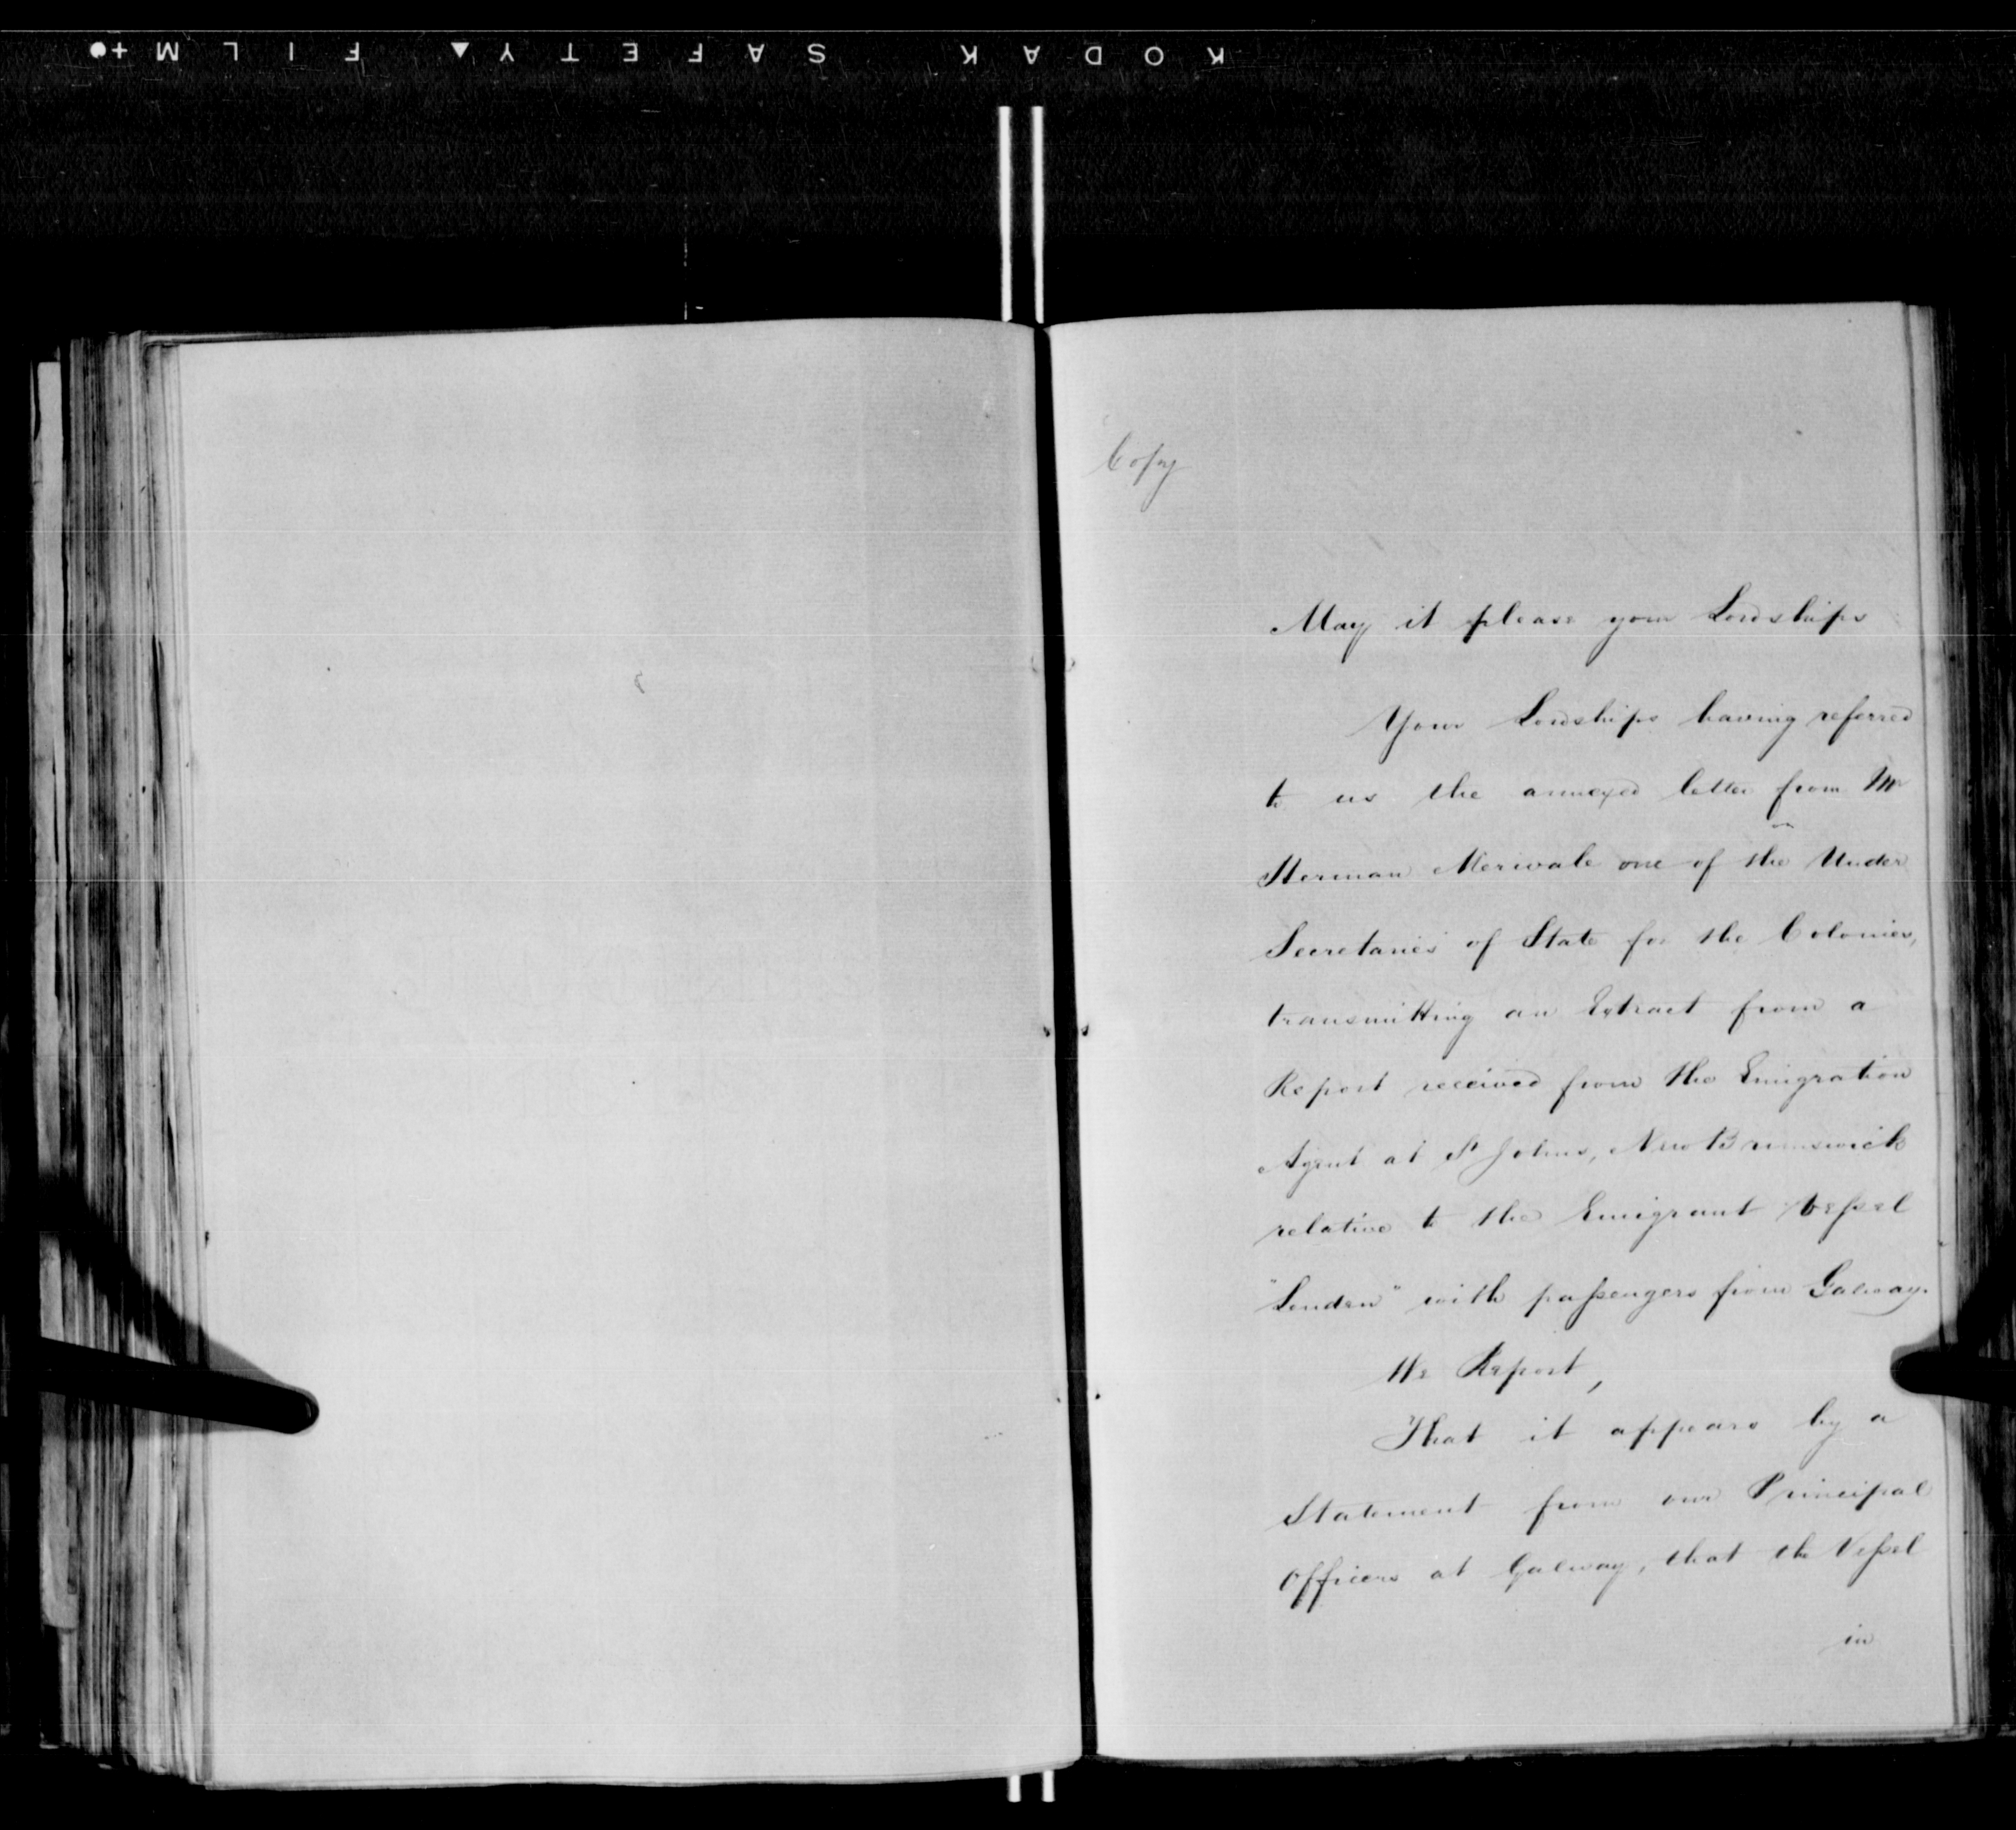 KODAK SAFETY▲FILM +●
Copy
May it please your Lordships
Your Lordships having referred
to us the annexed letter from Mr
Herman Merivale one of the Under
Secretaries of State for the Colonies,
transmitting an Extract from a
Report received from the Emigration
Agent at St Johns, New Brunswick
relative to the Emigrant Vessel
"London" with passengers from Galway.
We Report,
That it appears by a
Statement from our Principal
Officers at Galway, that the Vessel
in